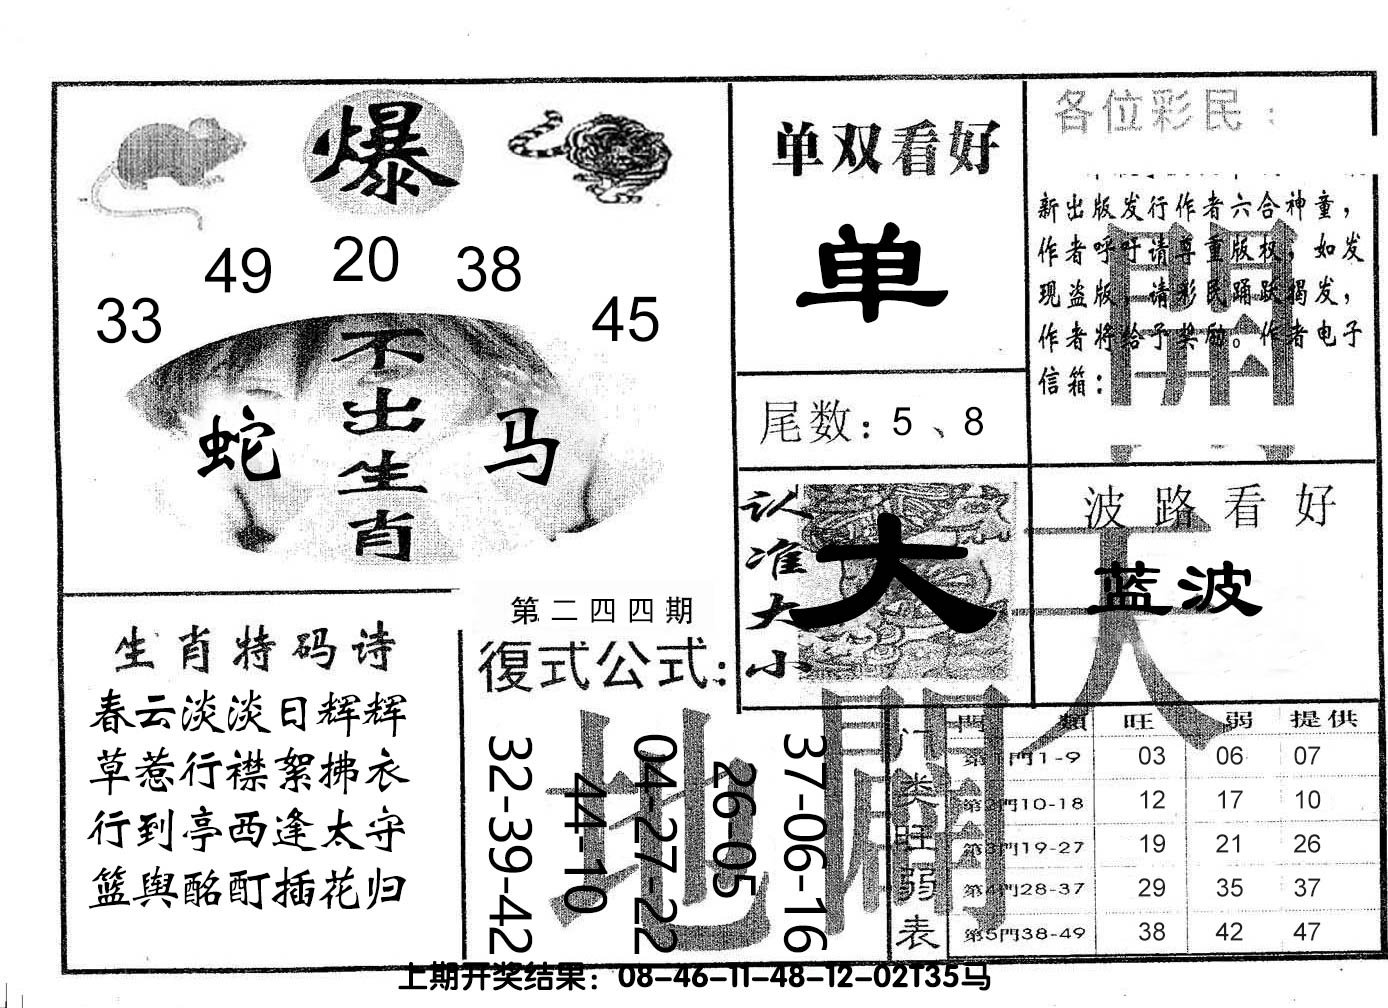 爆
49 20 38
33 45
不出生肖
蛇 马
单双看好
单
尾数：5、8
认准大小
大
各位彩民：
新出版发行作者六合神童，
作者呼吁请尊重版权，如发
现盗版，请彩民踊跃揭发，
作者将给予奖励。作者电子
信箱：
開
波路看好
蓝波
天
生肖特码诗
春云淡淡日辉辉
草惹行襟絮拂衣
行到亭西逢太守
篮舆酩酊插花归
第二四四期
復式公式：
地
32-39-42
44-10
04-27-22
26-05
37-06-16
门类旺弱表
門 類 旺 弱 提供
第1門1-9 03 06 07
第2門10-18 12 17 10
第3門19-27 19 21 26
第4門28-37 29 35 37
第5門38-49 38 42 47
上期开奖结果：08-46-11-48-12-02T35马